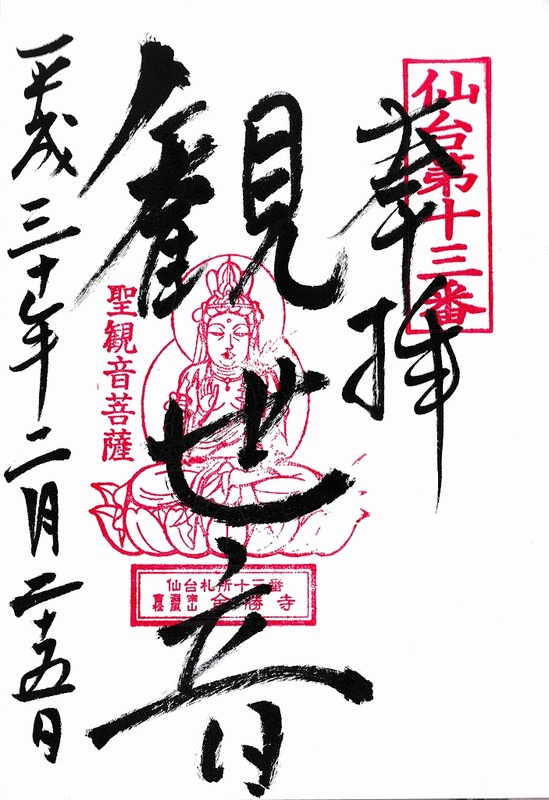 仙台第十三番
奉拝
観世音
聖観音菩薩
仙台札所十三番
金勝寺
平成三十年二月二十五日